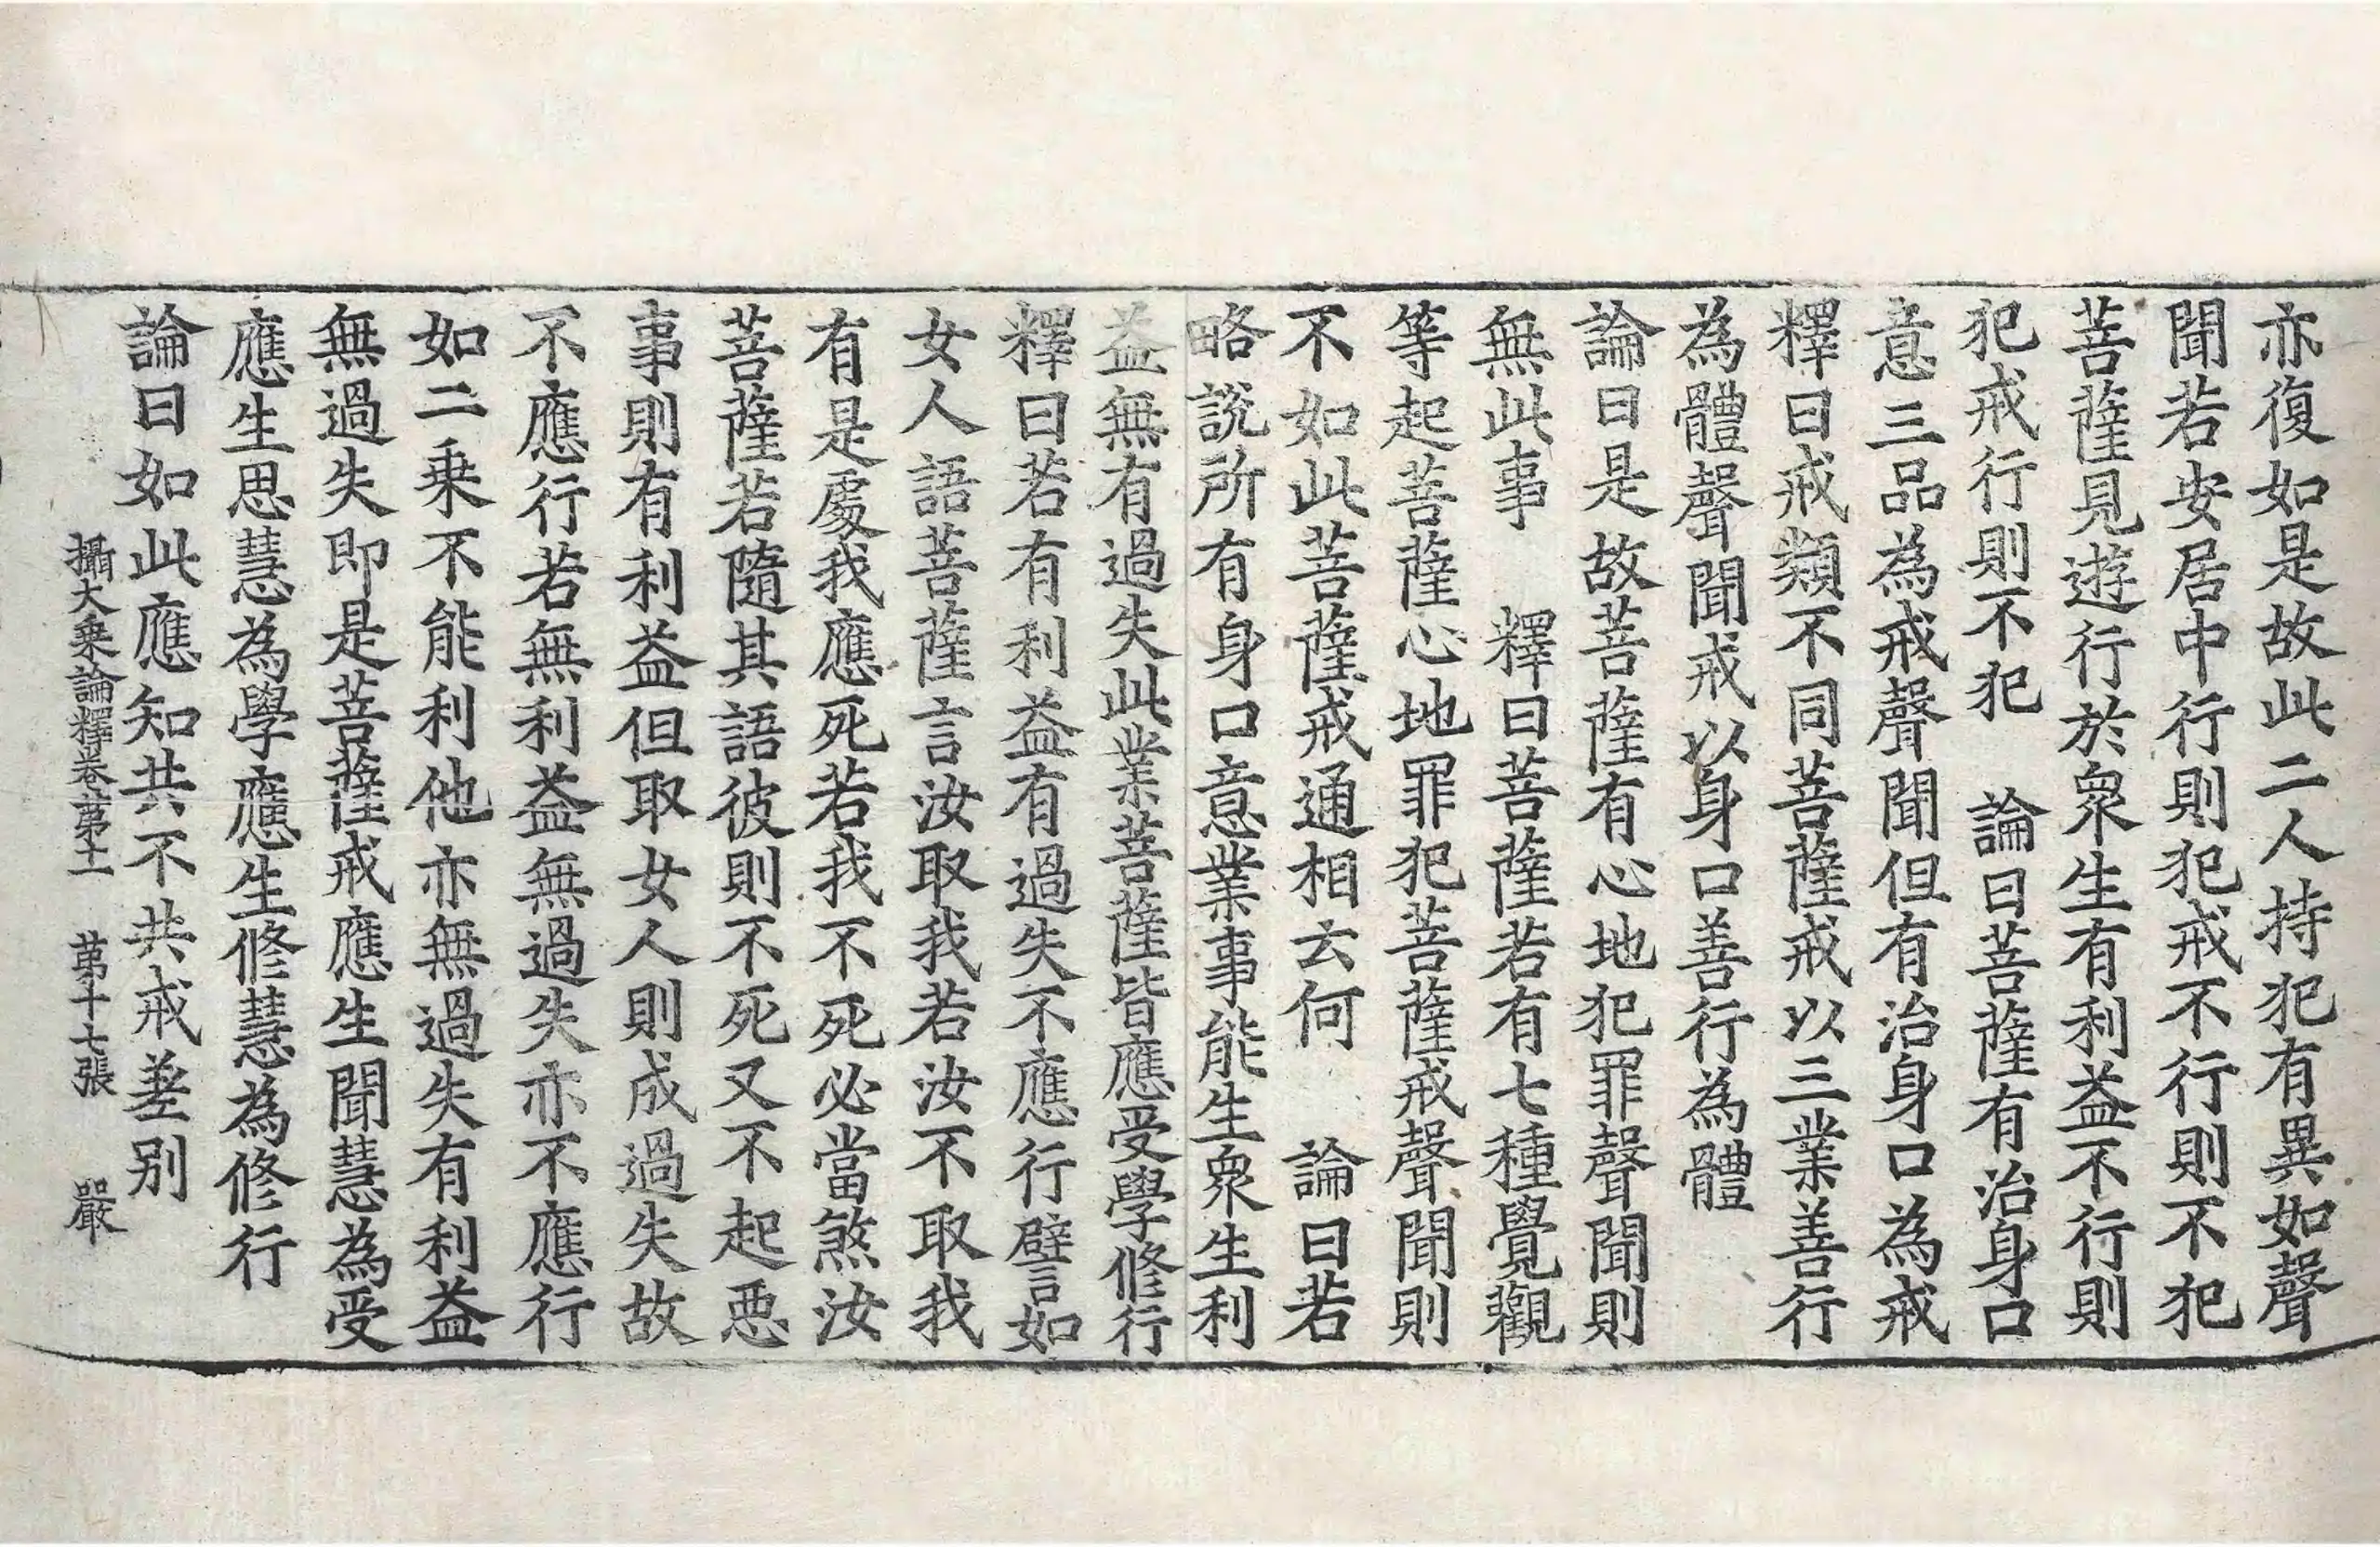 亦復如是故此二人持犯有異如聲
聞若安居中行則犯戒不行則不犯
菩薩見遊行於衆生有利益不行則
犯戒行則不犯　論曰菩薩有治身口
意三品為戒聲聞但有治身口為戒
釋曰戒類不同菩薩戒以三業善行
為體聲聞戒以身口善行為體
論曰是故菩薩有心地犯罪聲聞則
無此事　釋曰菩薩若有七種覺觀
等起菩薩心地罪犯菩薩戒聲聞則
不如此菩薩戒通相云何　論曰若
略說所有身口意業事能生衆生利
益無有過失此業菩薩皆應受學修行
釋曰若有利益有過失不應行譬如
女人語菩薩言汝取我若汝不取我
有是處我應死若我不死必當煞汝
菩薩若隨其語彼則不死又不起惡
事則有利益但取女人則成過失故
不應行若無利益無過失亦不應行
如二乗不能利他亦無過失有利益
無過失即是菩薩戒應生聞慧為受
應生思慧為學應生修慧為修行
論曰如此應知共不共戒差別
攝大乗論釋卷苐十一　苐十七張　嚴